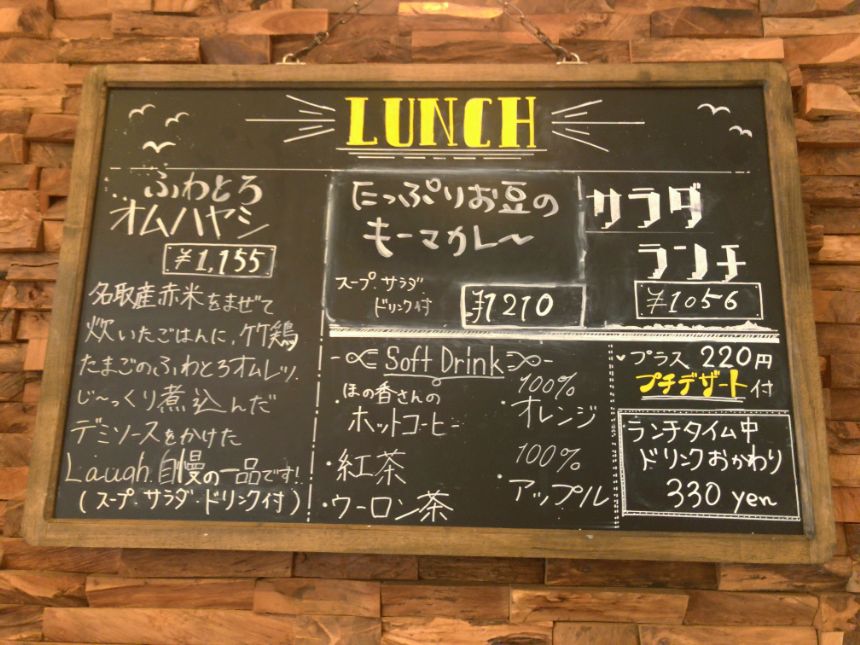 LUNCH
ふわとろ
オムハヤシ
¥1,155
名取産赤米をまぜて
炊いたごはんに、竹鶏
たまごのふわとろオムレツ。
じ〜っくり煮込んだ
デミソースをかけた
Laugh 自慢の一品です!
(スープ サラダ・ドリンク付)
たっぷりお豆の
キーマカレ〜
スープ サラダ
ドリンク付
¥1210
サラダ
ランチ
¥1056
Soft Drink
・ほの香さんの
ホットコーヒー
・紅茶
・ウーロン茶
100%
・オレンジ
100%
・アップル
プラス 220円
プチデザート付
ランチタイム中
ドリンクおかわり
330 yen